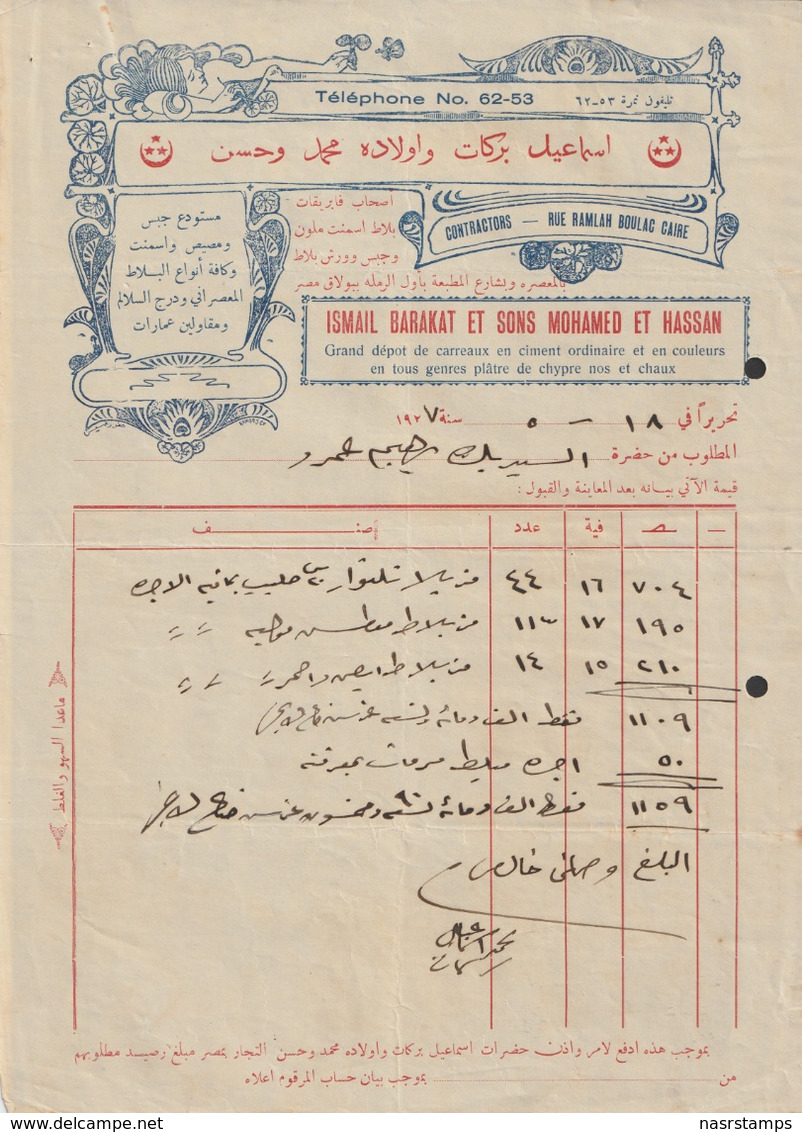 Téléphone No. 62-53
تليفون نمرة ٥٣-٦٢
اسماعيل بركات واولاده محمد وحسن
اصحاب فابريقات
بلاط اسمنت ملون
وجبس وورش بلاط
بالمعصره وبشارع المطبعة بأول الرمله ببولاق مصر
CONTRACTORS — RUE RAMLAH BOULAC CAIRE
مستودع جبس
ومصيص واسمنت
وكافة أنواع البلاط
المعصراني ودرج السلالم
ومقاولين عمارات
ISMAIL BARAKAT ET SONS MOHAMED ET HASSAN
Grand dépot de carreaux en ciment ordinaire et en couleurs
en tous genres plâtre de chypre nos et chaux
تحريراً في ١٨ - ٥ سنة ١٩٢٧
المطلوب من حضرة السيد بك
قيمة الآتي بيانه بعد المعاينة والقبول :
صـ فية عدد صنف
٧٠٤ ١٦ ٤٤ متر بلاط
١٩٥ ١٧ متر بلاط
٢١٠ ١٥ ١٤ متر بلاط ابيض واحمر
١١٠٩ فقط الف ومائة وتسعة غرش صاغ لاغير
٥٠ اجرة
١١٥٩ فقط الف ومائة تسعة وخمسون غرش صاغ لاغير
المبلغ وصلني خالص
ماعدا السهو والغلط
بموجب هذه ادفع لامر واذن حضرات اسماعيل بركات واولاده محمد وحسن التجار بمصر مبلغ رصيد مطلوبهم
من بموجب بيان حساب المرقوم اعلاه
nasrstamps